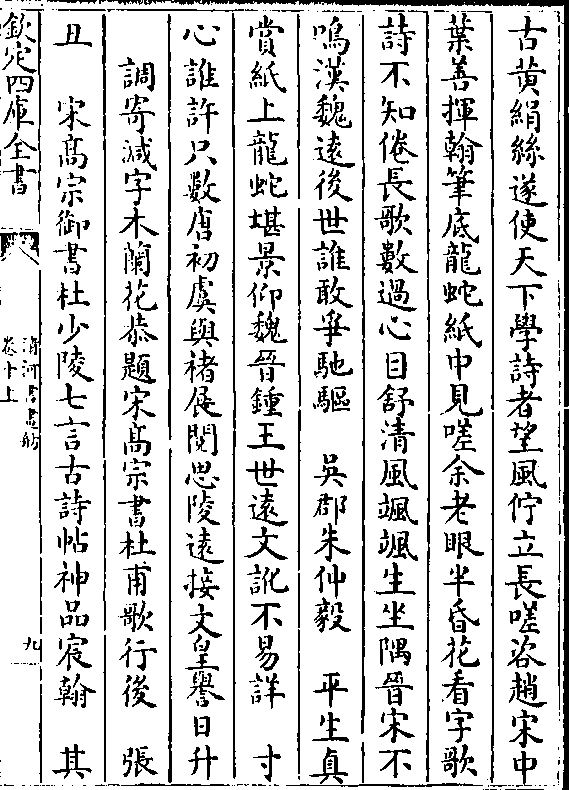 古黄絹絲遂使天下學詩者望風佇立長嗟咨趙宋中
葉善揮翰筆底龍蛇紙中見嗟余老眼半昏花看字歌
詩不知倦長歌數過心目舒清風颯颯生坐隅晉宋不
鳴漢魏遠後世誰敢爭馳驅　吳郡朱仲毅　平生真
賞紙上龍蛇堪景仰魏晉鍾王世遠文訛不易詳　寸
心誰許只數唐初虞與褚展閱思陵遠接文皇譽日升
調寄減字木蘭花恭題宋髙宗書杜甫歌行後　張
丑　宋髙宗御書杜少陵七言古詩帖神品宸翰　其
欽定四庫全書
清河書畫舫
卷十上
九